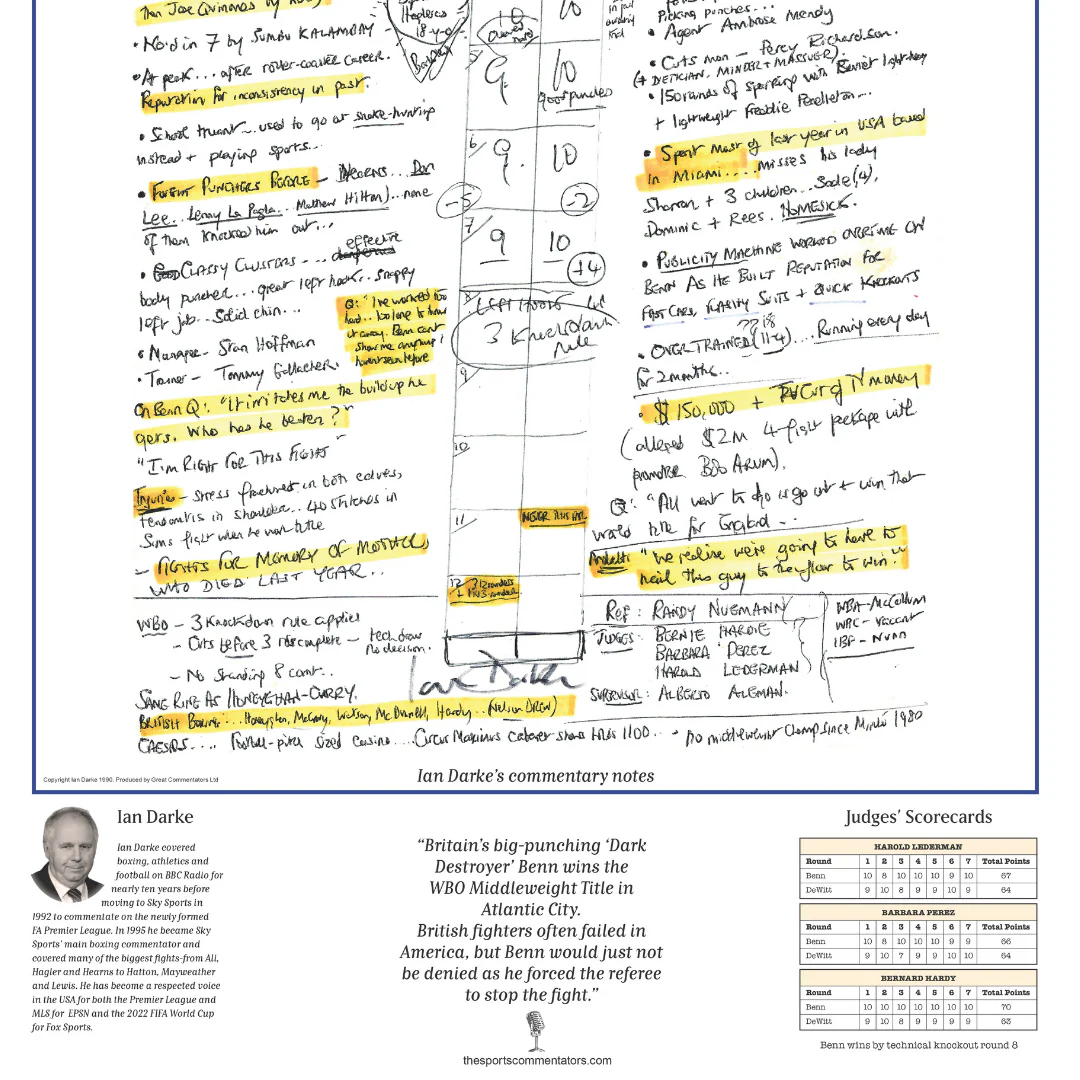 than Joe
• No'd in 7 by SUMBU KALAMBAY
• At peak... after roller-coaster career.
Reputation for inconsistency in past.
• School truant... used to go at snake-hunting
instead + playing sports...
• FOUGHT PUNCHERS BEFORE - HEARNS... Don
Lee.. Lenny La Paglia.. Matthew Hilton)...none
of them knocked him out...
effective
• CLASSY CLUSTERS - ...
body puncher... great left hook.. snappy
left jab.. Solid chin...
• Manager - Stan Hoffman
• Trainer - Tommy Gallagher.
Q: "I've worked too
hard... too long to throw
it away. Benn can't
show me anything I
haven't seen before
On Benn Q: "It irritates me the build up he
gets. Who has he beaten?"
"I'M RIGHT FOR THIS FIGHT"
Injuries - stress fractures in both calves,
tendonitis in shoulder.. 40 stitches in
Sims fight when he won title
- FIGHTS FOR MEMORY OF MOTHER,
WHO DIED LAST YEAR...
18-4-0
10
5/ 9 10
good punches
6/ 9. 10
-5 -2
7/ 9 10
+4
8 LEFT HOOKS
3 Knockdown
rule
9
10
11 NEVER THIS FAR
12 3 12 rounders
Picking punches...
• Agent Ambrose Mendy
• Cuts man - Percy Richardson.
(+ DIETICIAN, MINDER + MASSEUR).
• 150 rounds of sparring with Bernier light-heavy
+ lightweight Freddie Pendleton...
• Spent most of last year in USA based
in Miami.... misses his lady
Sharron + 3 children.. Sade (4),
Dominic + Rees. HOMESICK.
• PUBLICITY MACHINE WORKED OVERTIME ON
BENN AS HE BUILT REPUTATION FOR
FAST CARS, FLASHY SUITS + QUICK KNOCKOUTS
• OVERTRAINED (11-4).... Running every day
for 2 months..
• $150,000 + money
(alleged $2M 4-fight package with
promoter BOB ARUM).
Q: "All I want to do is go out + win that
world title for England...
"We realise we're going to have to
nail this guy to the floor to win."
WBO - 3 Knockdown rule applies
- Cuts before 3 rds complete - tech draw
No decision.
- No Standing 8 count..
SAME RING AS HONEYGHAN-CURRY.
BRITISH BOXING... Honeyghan, McCrory, Watson, McDonnell, Hardy... (Nelson DREW)
CAESARS.... Football-pitch sized casino.... Circus Maximus cabaret show holds 1100... - No middleweight champ since Minter 1980
Ian Darke
REF: RANDY NUEMANN
JUDGES: BERNIE HARDIE
BARBARA PEREZ
HAROLD LEDERMAN
SUPERVISOR: ALBERTO ALEMAN.
WBA - McCallum
WBC - Vacant
IBF - Nunn
Copyright Ian Darke 1990. Produced by Great Commentators Ltd
Ian Darke's commentary notes
Ian Darke
Ian Darke covered
boxing, athletics and
football on BBC Radio for
nearly ten years before
moving to Sky Sports in
1992 to commentate on the newly formed
FA Premier League. In 1995 he became Sky
Sports' main boxing commentator and
covered many of the biggest fights-from Ali,
Hagler and Hearns to Hatton, Mayweather
and Lewis. He has become a respected voice
in the USA for both the Premier League and
MLS for EPSN and the 2022 FIFA World Cup
for Fox Sports.
"Britain's big-punching 'Dark
Destroyer' Benn wins the
WBO Middleweight Title in
Atlantic City.
British fighters often failed in
America, but Benn would just not
be denied as he forced the referee
to stop the fight."
thesportscommentators.com
Judges' Scorecards
HAROLD LEDERMAN
Round 1 2 3 4 5 6 7 Total Points
Benn 10 8 10 10 10 9 10 67
DeWitt 9 10 8 9 9 10 9 64
BARBARA PEREZ
Round 1 2 3 4 5 6 7 Total Points
Benn 10 8 10 10 10 9 9 66
DeWitt 9 10 7 9 9 10 10 64
BERNARD HARDY
Round 1 2 3 4 5 6 7 Total Points
Benn 10 10 10 10 10 10 10 70
DeWitt 9 10 8 9 9 9 9 63
Benn wins by technical knockout round 8